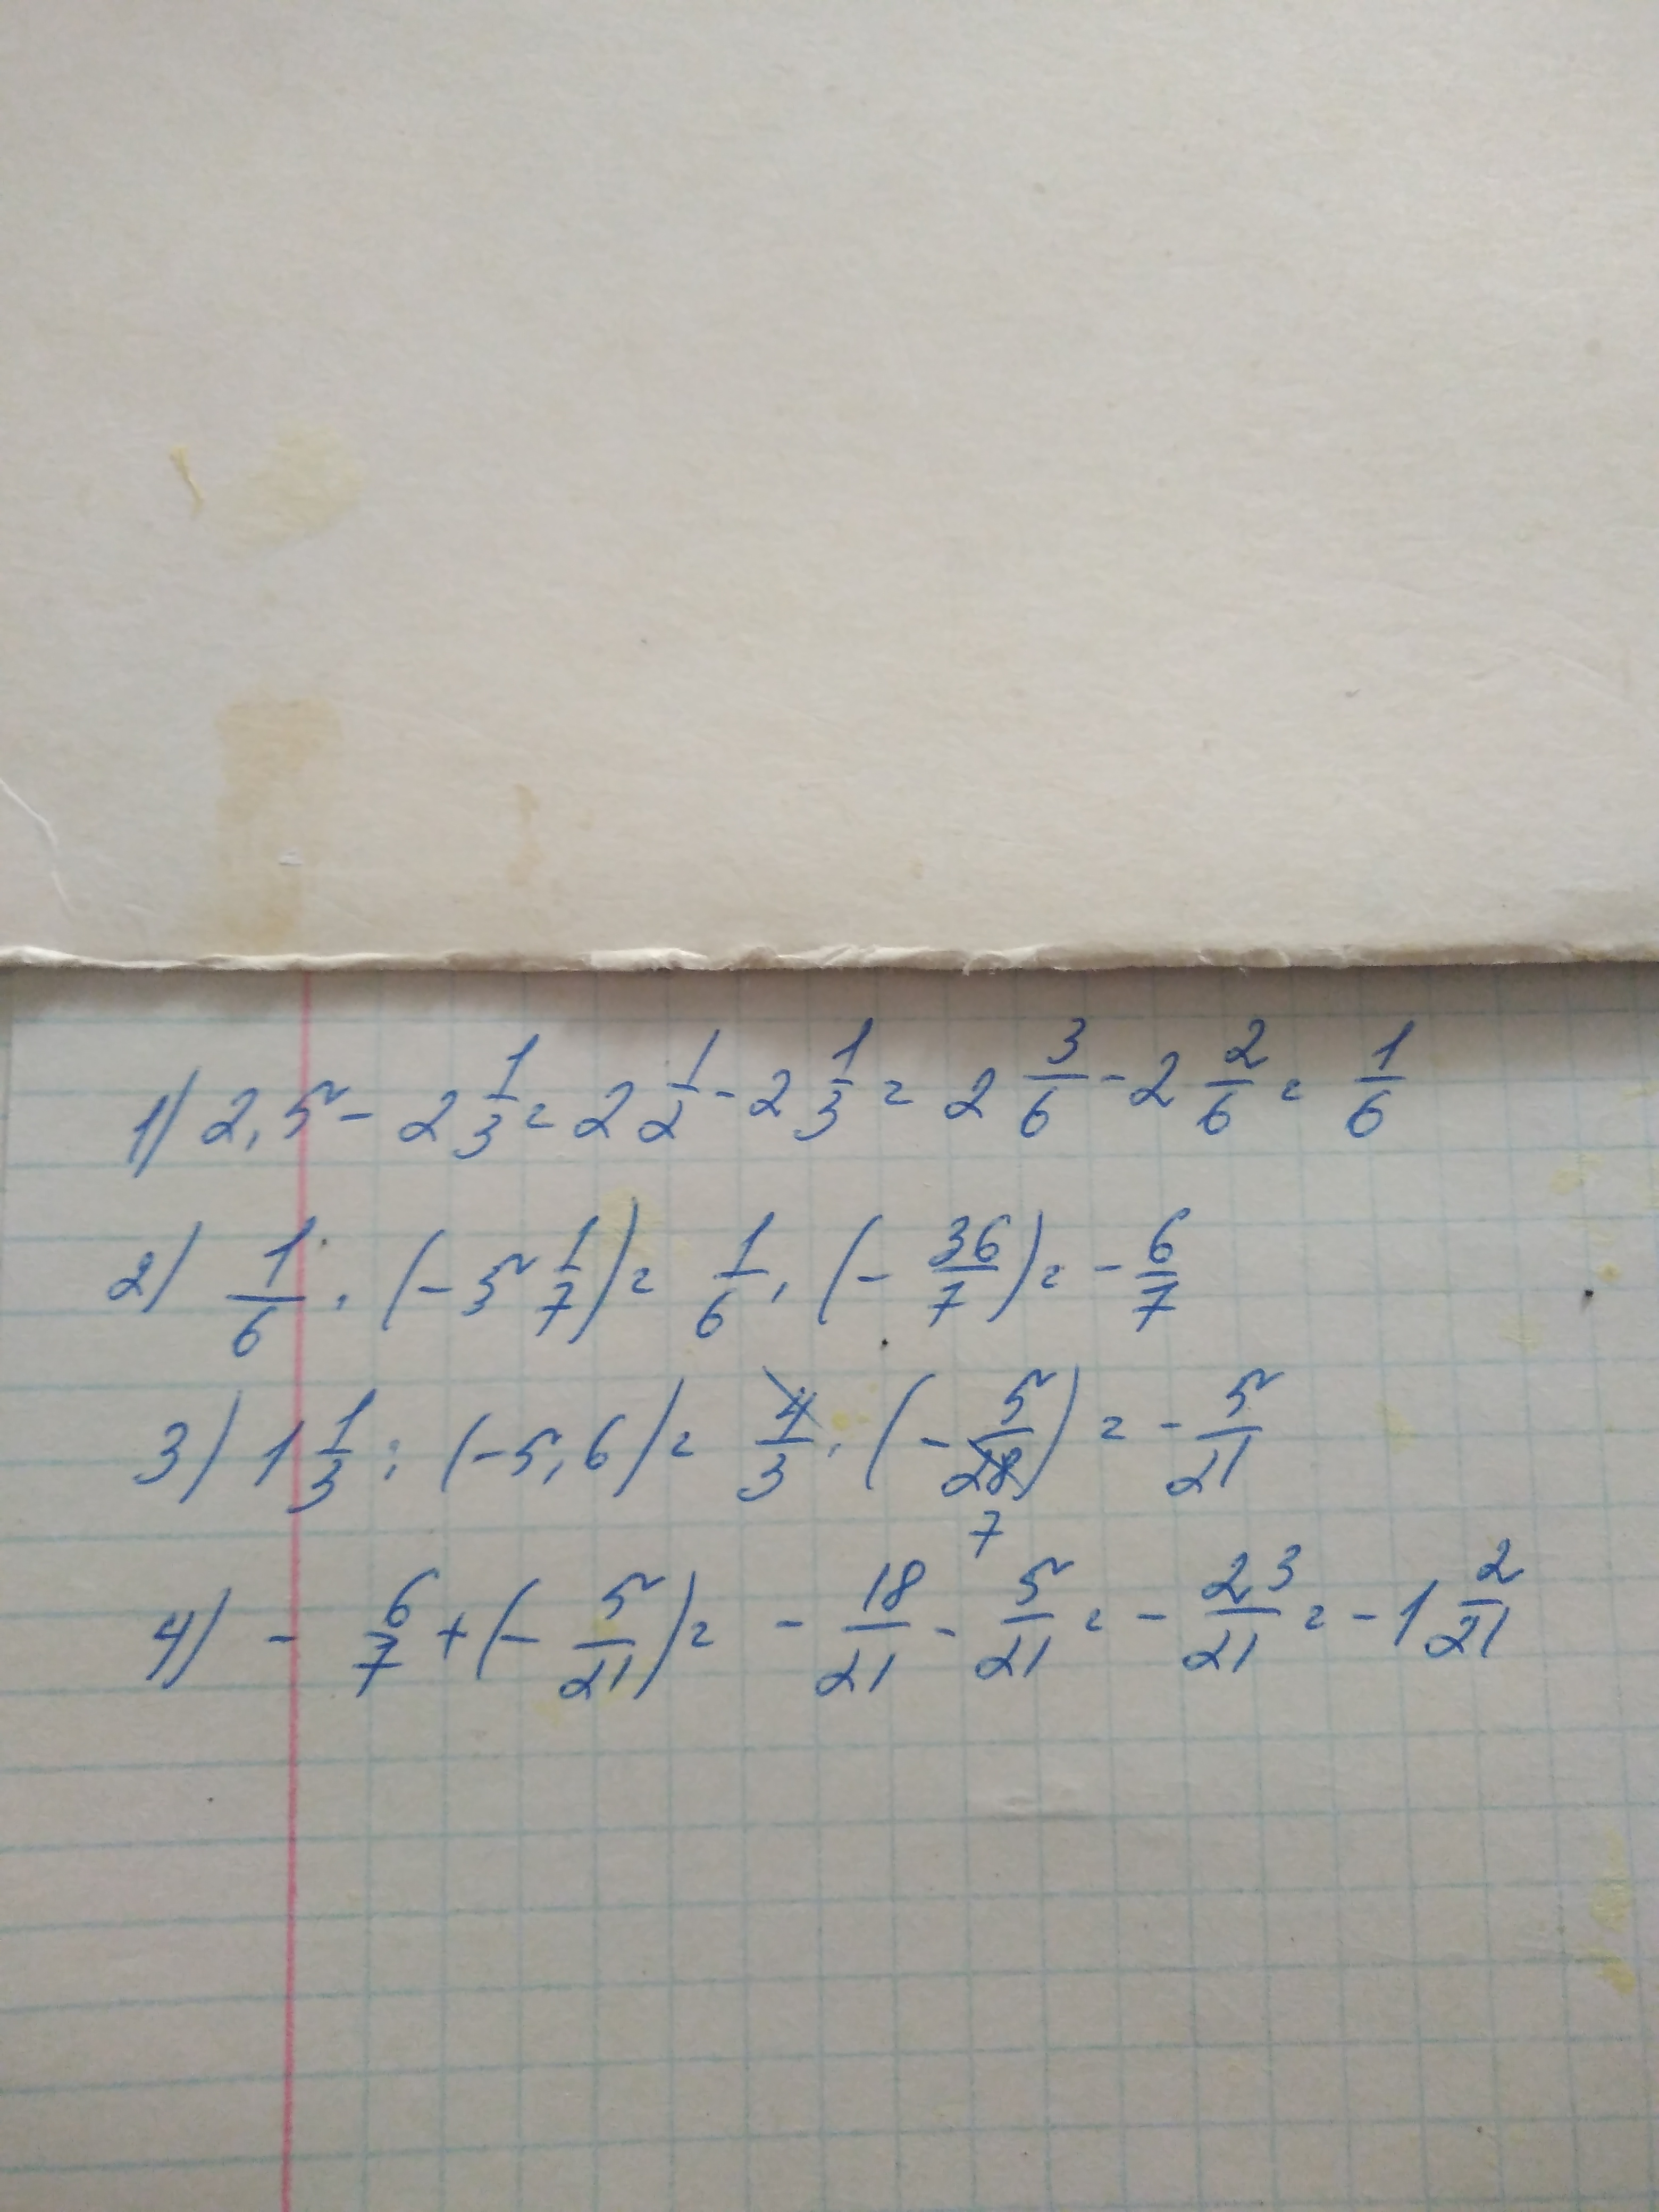 1) 2,5 - 2 1/3 = 2 1/2 - 2 1/3 = 2 3/6 - 2 2/6 = 1/6
2) 1/6 · (-5 1/7) = 1/6 · (-36/7) = -6/7
3) 1 1/3 : (-5,6) = 4/3 · (-5/28) = -5/21
7
4) -6/7 + (-5/21) = -18/21 - 5/21 = -23/21 = -1 2/21